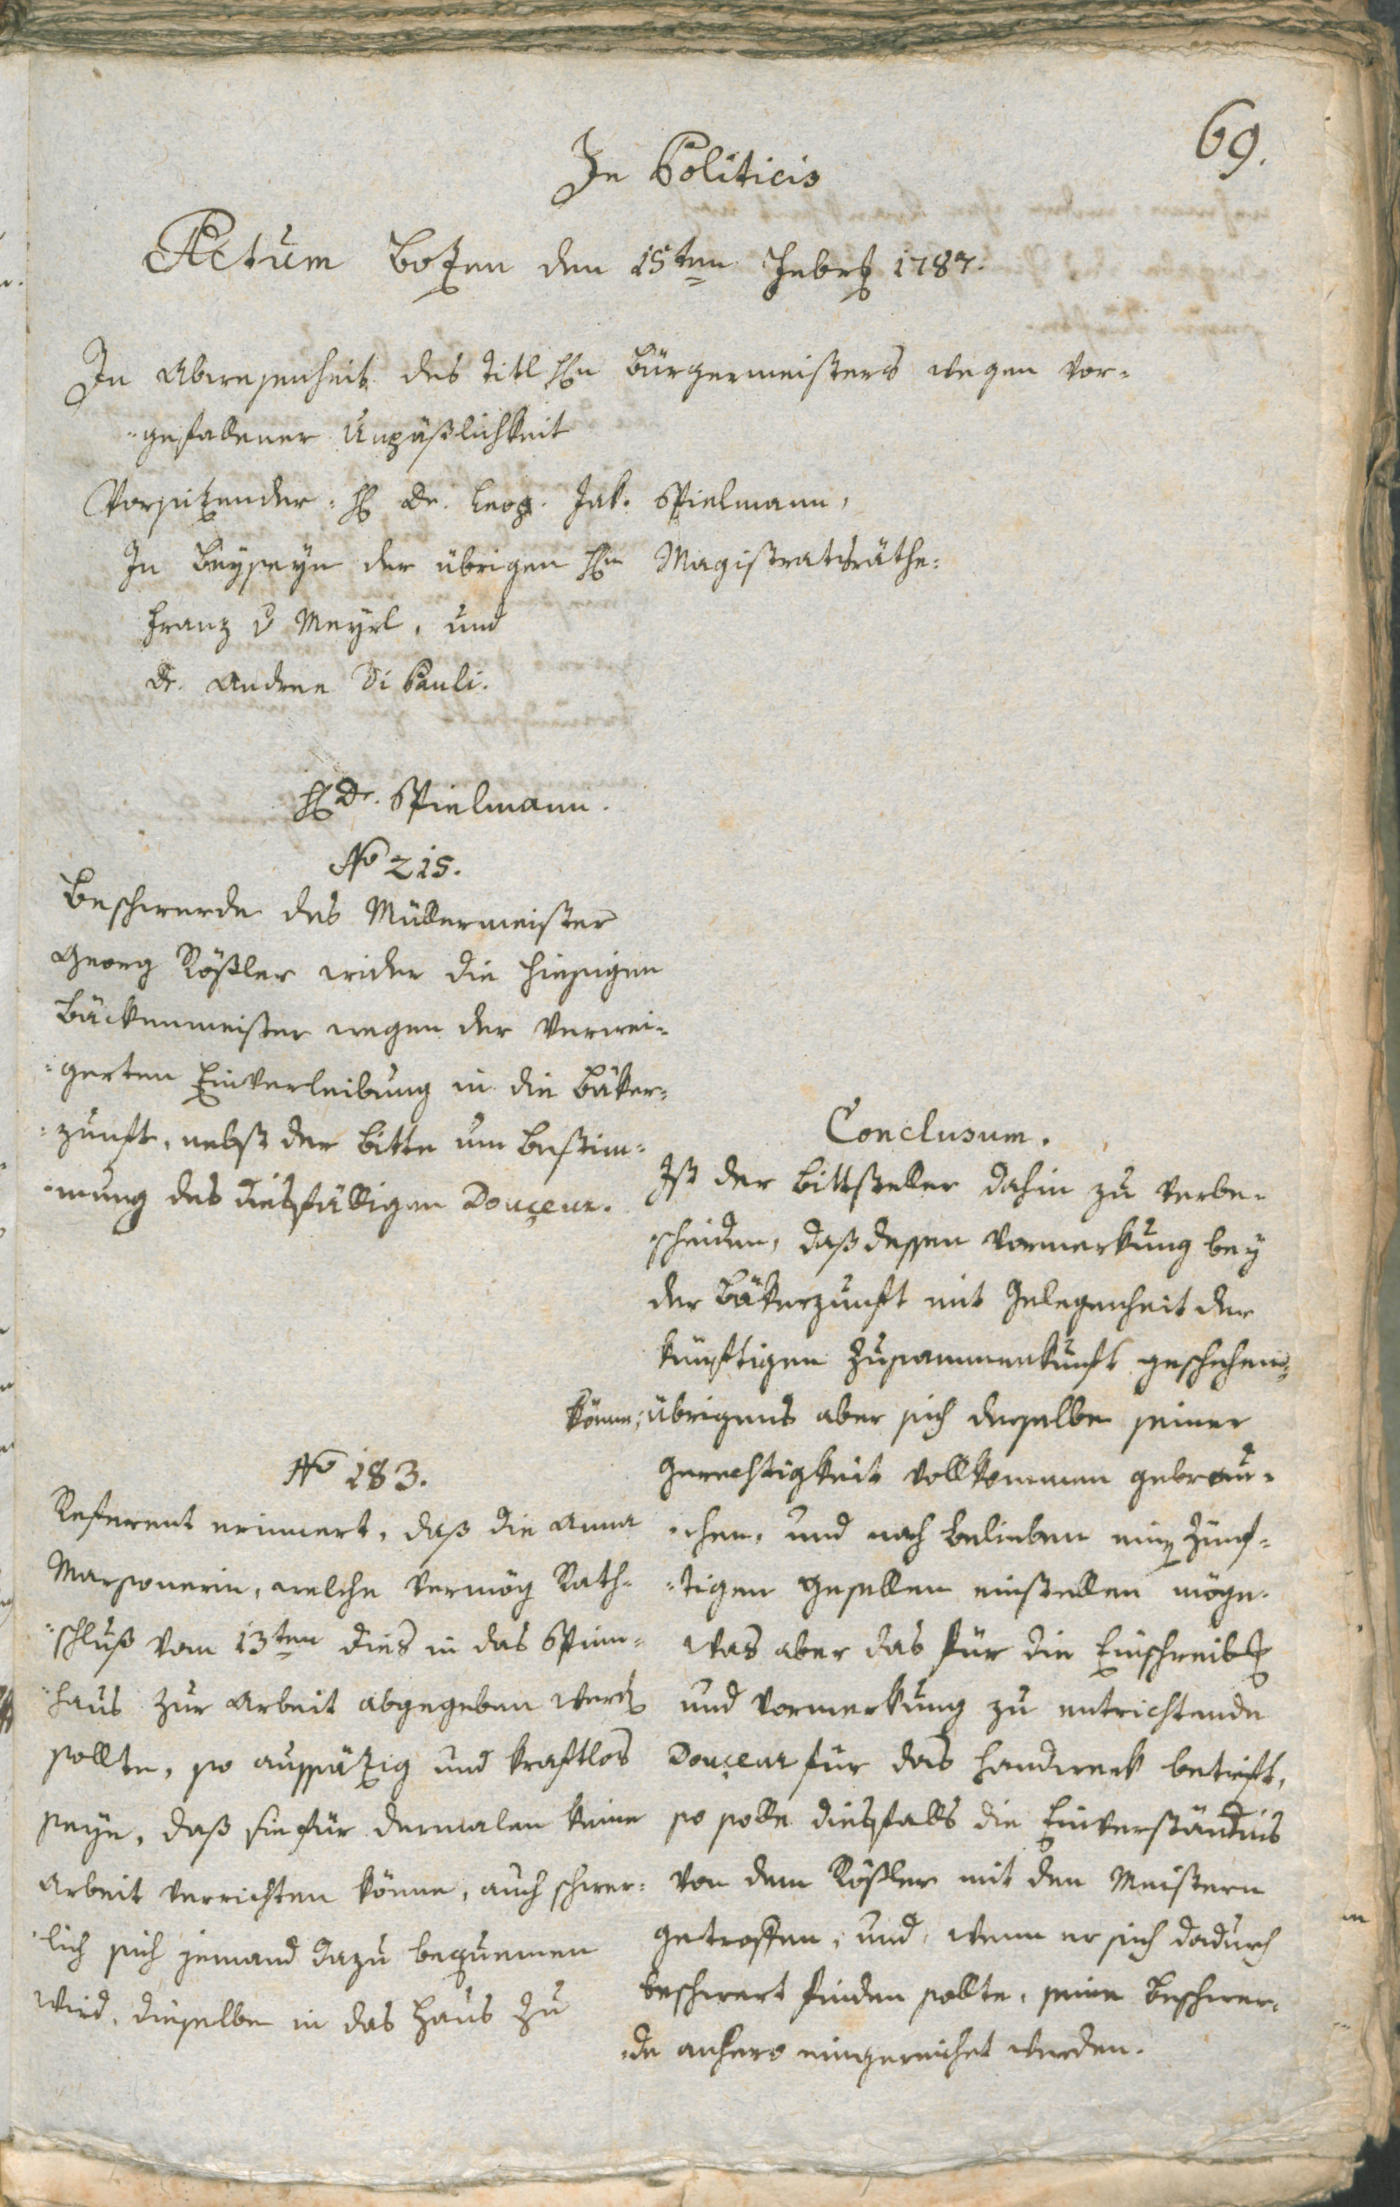 69.
In Politicis
Actum Bozen den 15ten Febr. 1787.
In Abwesenheit des Titl Hn Bürgermeisters wegen vor-
-gefallener Unpäßlichkeit
Vorsitzender: H Dr. Leop. Jak. Spielmann,
In Beyseyn der übrigen Hn Magistratsräthe:
Franz v Meyrl, und
Dr. Andree Di Pauli.
H Dr. Spielmann.
No 215.
Beschwerde des Müllermeister
Georg Rößler wider die hiesigen
Bäckenmeister wegen der verwei-
-gerten Einverleibung in die Bäker-
-zunft, nebst der Bitte um Bestim-
-mung des diesfälligen Douçeur.
Conclusum.
Ist der Bittsteller dahin zu verbe-
-scheiden, daß dessen Vormerkung bey
der Bäkerzunft mit Gelegenheit der
künftigen Zusammenkunft geschehen
könne; übrigens aber sich derselbe seiner
Gerechtigkeit vollkommen gebrau-
-chen, und nach Belieben ein zünf-
-tigen Gesellen einstellen möge.
Was aber das für die Einschreib
und Vormerkung zu entrichtende
Douçeur für das Handwerk betrift,
so solle diesfalls die Einverständnis
von dem Rößler mit den Meistern
getroffen, und, wenn er sich dadurch
beschwert finden sollte, seine Beschwer-
-de anhero eingereichet werden.
No 183.
Referent erinnert, daß die Anna
Marsonerin, welche vermög Rath-
-schluß vom 13ten dies in das Spinn-
-haus zur Arbeit abgegeben werd
sollte, so aussätzig und kraftlos
seye, daß sie für dermalen keine
Arbeit verrichten könne, auch schwer-
-lich sich jemand dazu bequemen
wird, dieselbe in das Haus zu